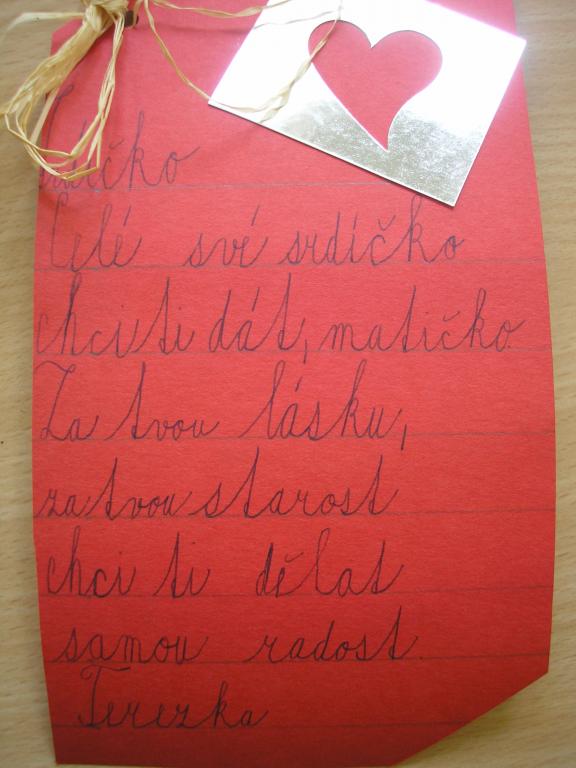 Srdíčko
Celé své srdíčko
chci ti dát, matičko
Za tvou lásku,
za tvou starost
chci ti dělat
samou radost.
Terezka